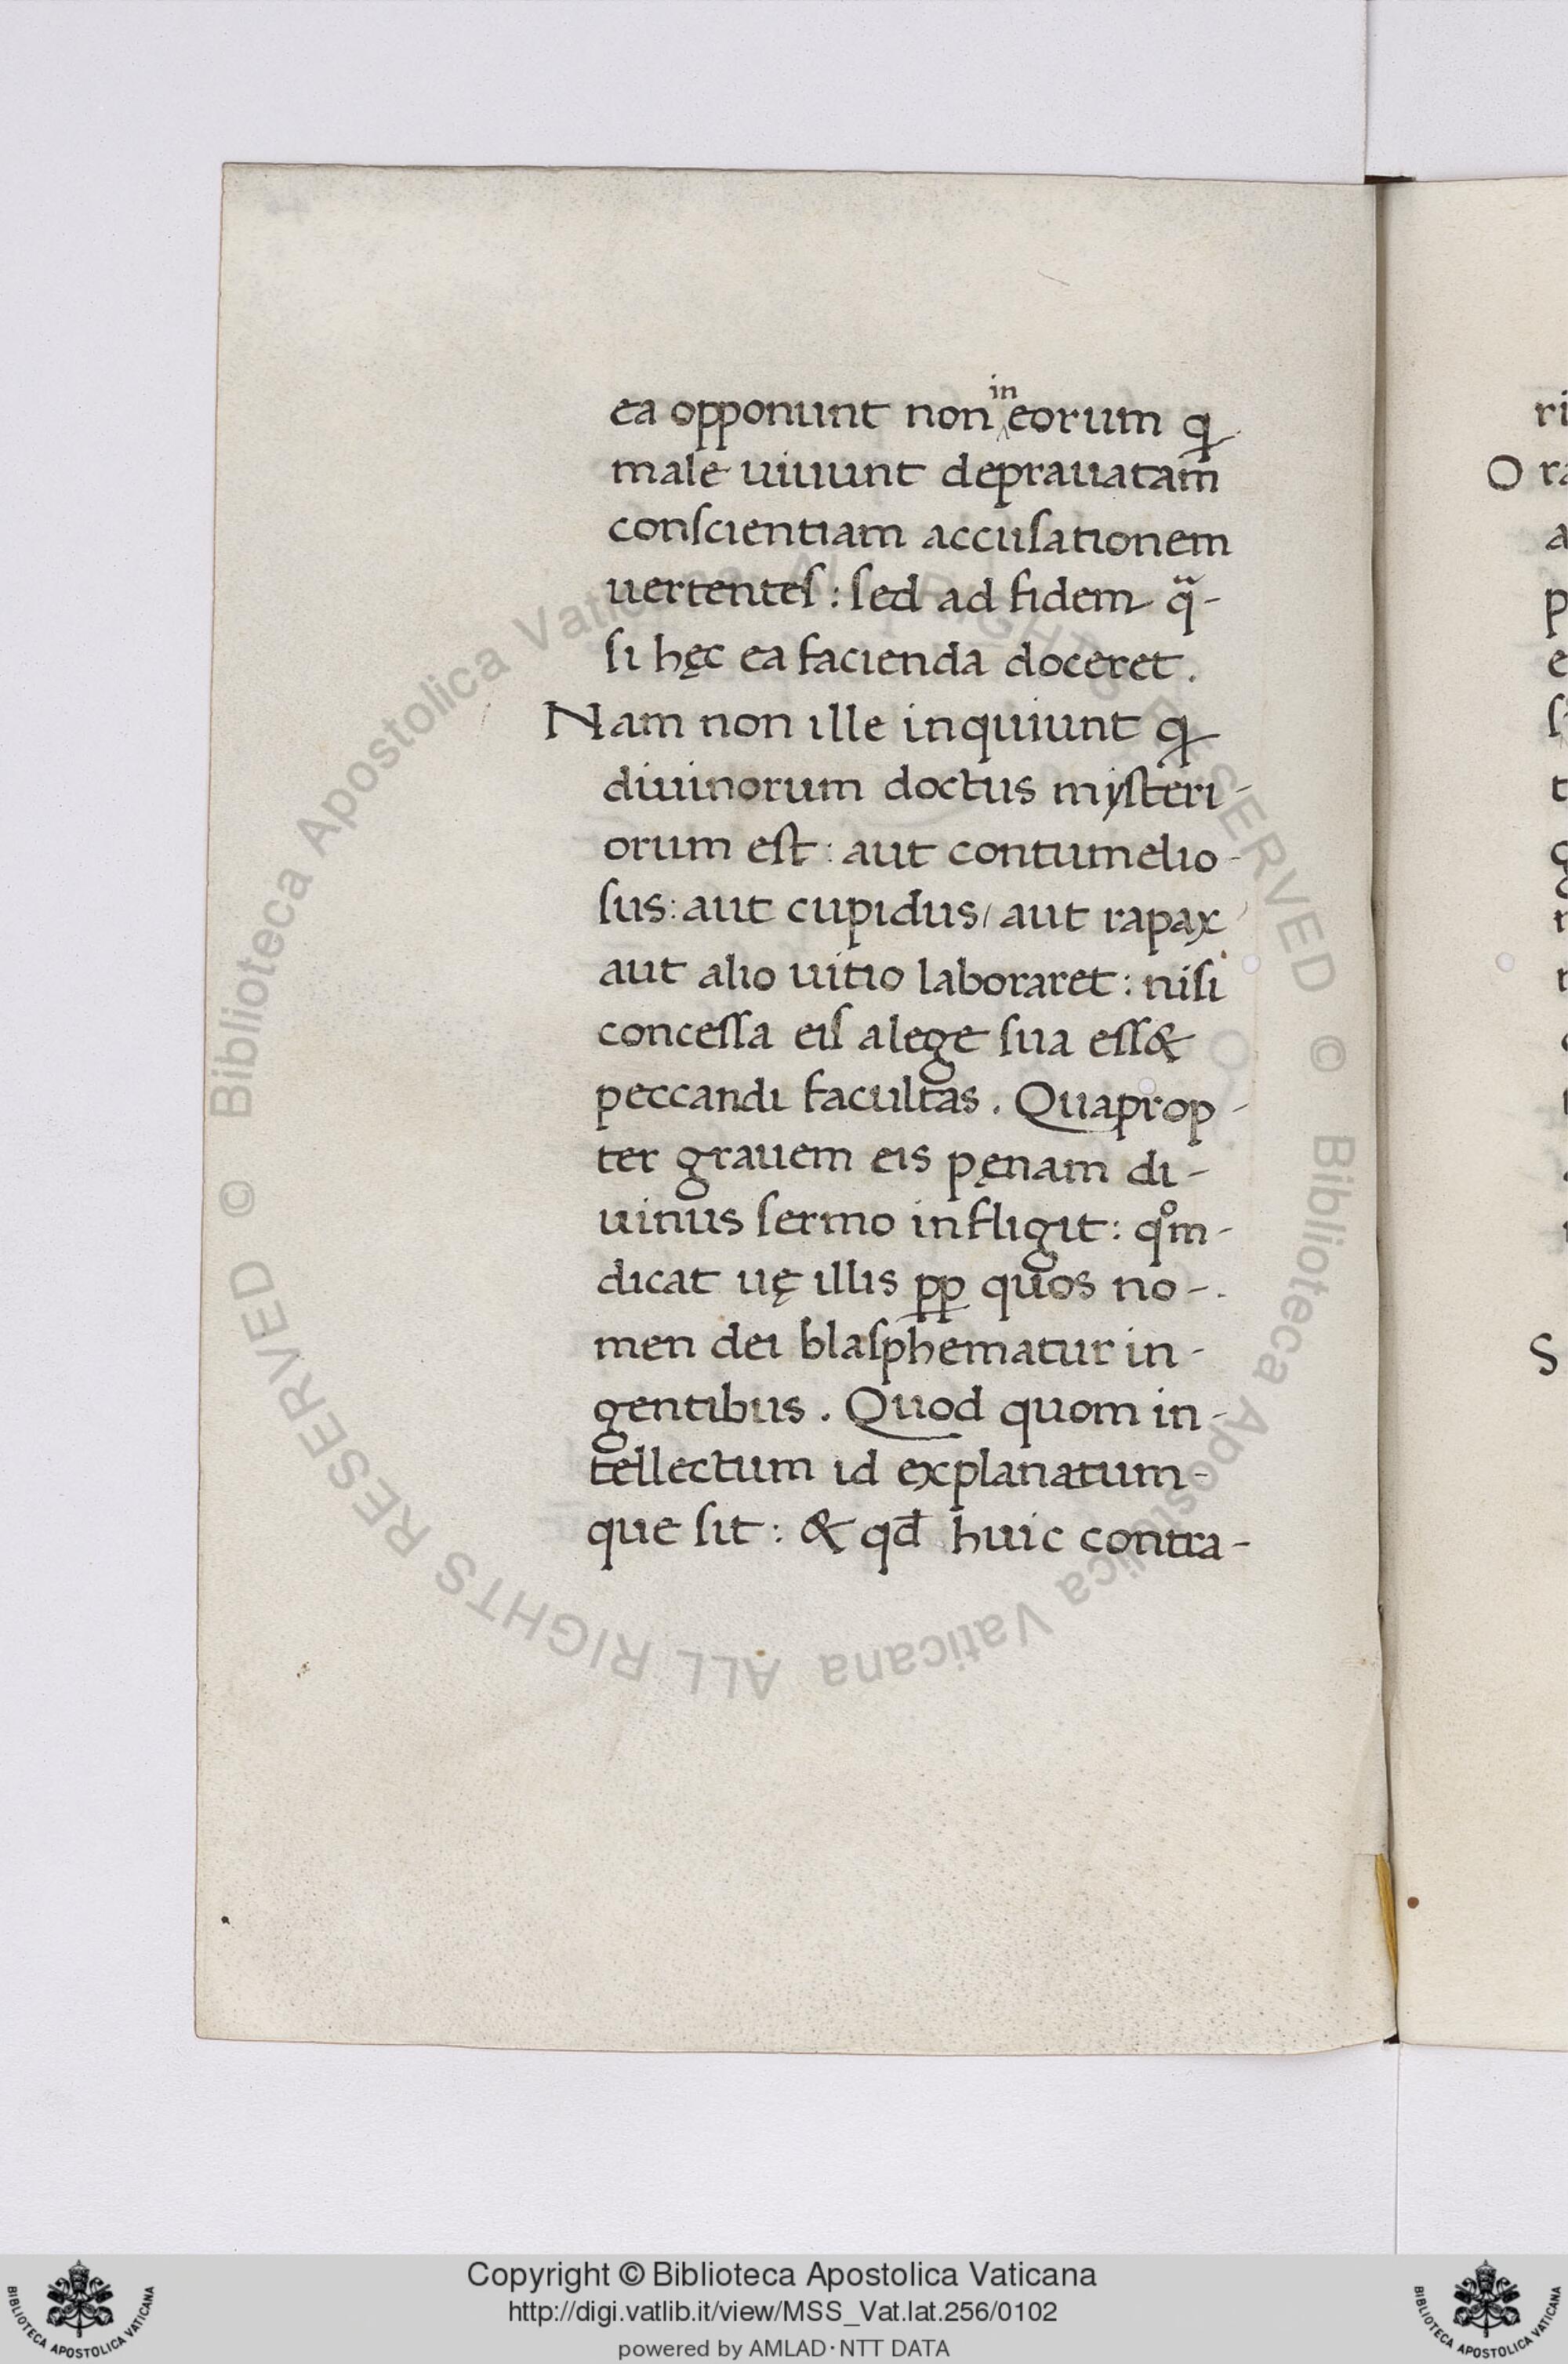 ea opponunt non in eorum ꝗ
male uiuunt deprauatam̄
conſcientiam accuſationem
uertenteſ : ſed ad fidem q̈-
ſi hęc ea facienda doceret .
Nam non ille inquiunt ꝗ
diuinorum doctus myſteri-
orum eſt : aut contumelio-
ſus : aut cupidus / aut rapax
aut alio uitio laboraret : niſi
conceſſa eiſ alege ſua eſſ&
peccandi facultas . Quaprop-
ter grauem eis pęnam di-
uinus ſermo infligit : qͦm-
dicat uę illis ꝑꝑ quos no-.
men dei blaſphematur in-
gentibus . Quod quom in-
tellectum id explanatum-
que ſit : & qd̄ huic contra-
ri
O ra
© Biblioteca Apostolica Vaticana ALL RIGHTS RESERVED © Biblioteca Apostolica Vaticana ALL RIGHTS RESERVED
Copyright © Biblioteca Apostolica Vaticana
http://digi.vatlib.it/view/MSS_Vat.lat.256/0102
powered by AMLAD·NTT DATA
BIBLIOTECA APOSTOLICA VATICANA
BIBLIOTECA APOSTOLICA VATICANA